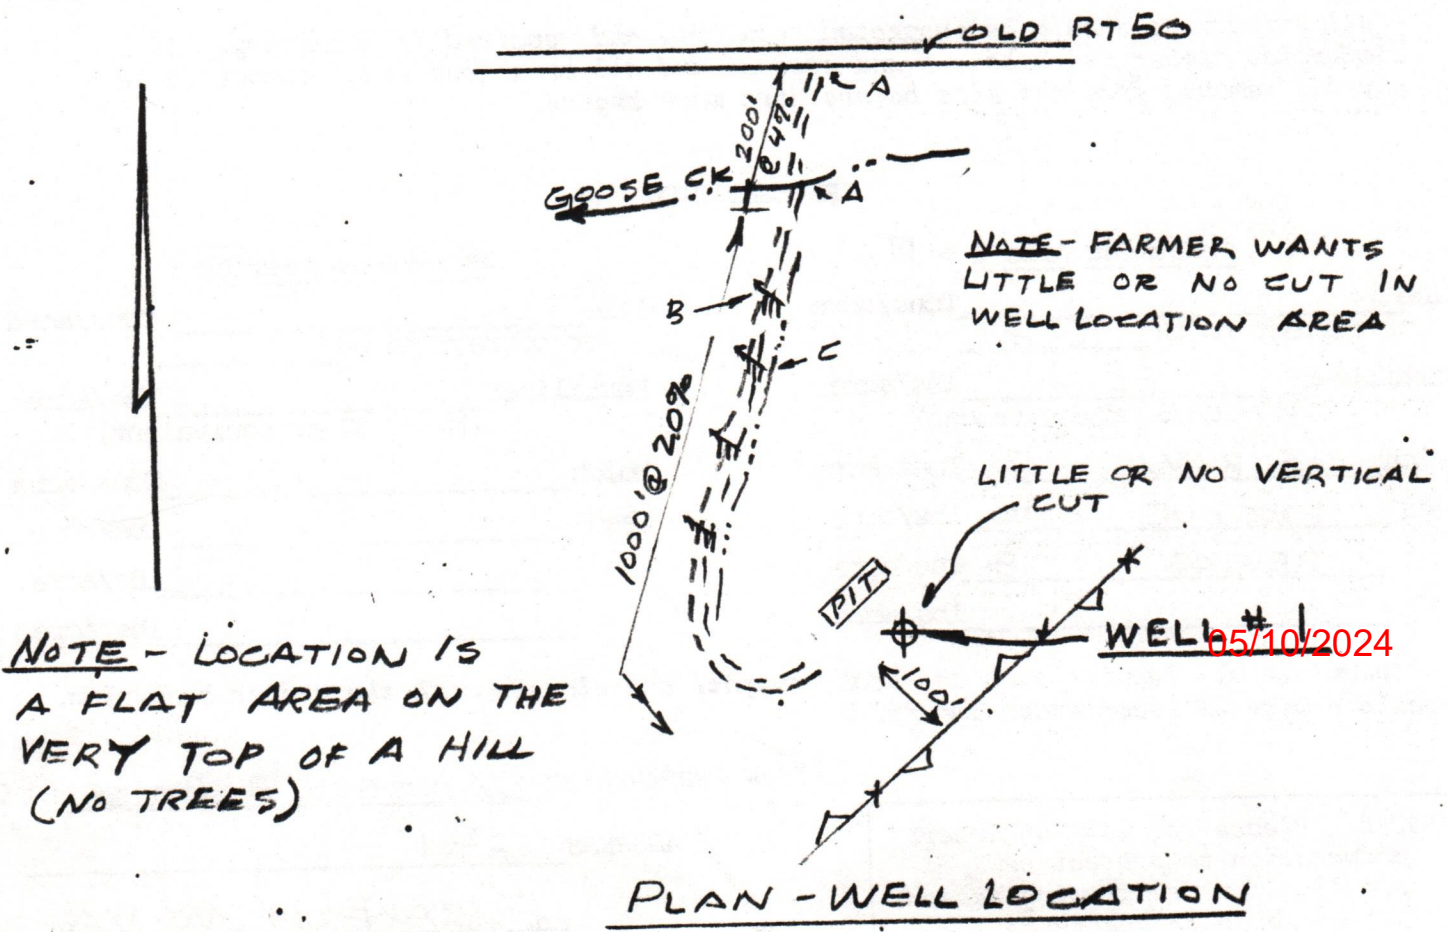 OLD RT50
A
200'
@ 4%
GOOSE CK
A
NOTE - FARMER WANTS
LITTLE OR NO CUT IN
WELL LOCATION AREA
B
C
1000' @ 20%
LITTLE OR NO VERTICAL
CUT
PIT
WELL # 1
05/10/2024
100'
NOTE - LOCATION IS
A FLAT AREA ON THE
VERY TOP OF A HILL
(NO TREES)
PLAN - WELL LOCATION